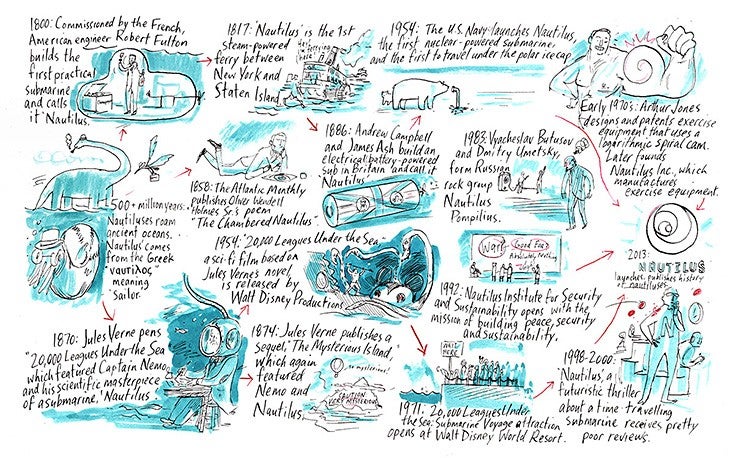 1800: Commissioned by the French,
American engineer Robert Fulton
builds the
first practical
submarine
and calls
it 'Nautilus.'
1817: 'Nautilus' is the 1st
steam-powered
ferry between
New York and
Staten Island
1954: The U.S. Navy launches Nautilus,
the first nuclear-powered submarine,
and the first to travel under the polar ice cap
Early 1970s: Arthur Jones
designs and patents exercise
equipment that uses a
logarithmic spiral cam.
Later founds
Nautilus Inc., which
manufactures
exercise equipment.
500+ million years:
Nautiluses roam
ancient oceans.
'Nautilus' comes
from the Greek
ναυτίλος,
meaning
Sailor.
1858: The Atlantic Monthly
publishes Oliver Wendell
Holmes Sr.'s poem
"The Chambered Nautilus".
1886: Andrew Campbell
and James Ash build an
electrical battery-powered
sub in Britain and call it
'Nautilus'
1983: Vyacheslav Butusov
and Dmitry Umetsky,
form Russian
rock group
Nautilus
Pompilius.
1954: '20,000 Leagues Under the Sea,'
a sci-fi film based on
Jules Verne's novel,
is released by
Walt Disney Productions
War
Good Food
Absolutely nothing
1992: Nautilus Institute for Security
and Sustainability opens with the
mission of building peace, security
and sustainability.
2013:
NAUTILUS
launches, publishes history
of nautiluses.
1870: Jules Verne pens
"20,000 Leagues Under the Sea"
which featured Captain Nemo
and his scientific masterpiece
of a submarine, 'Nautilus'
1874: Jules Verne publishes a
Sequel, 'The Mysterious Island,'
which again
featured
Nemo and
Nautilus.
so mysterious!
CAUTION
VERY MYSTERIOUS
WAIT
HERE
1971: '20,000 Leagues Under
the Sea: Submarine Voyage' attraction
opens at Walt Disney World Resort.
1998-2000:
'Nautilus', a
futuristic thriller
about a time travelling
Submarine receives pretty
poor reviews.